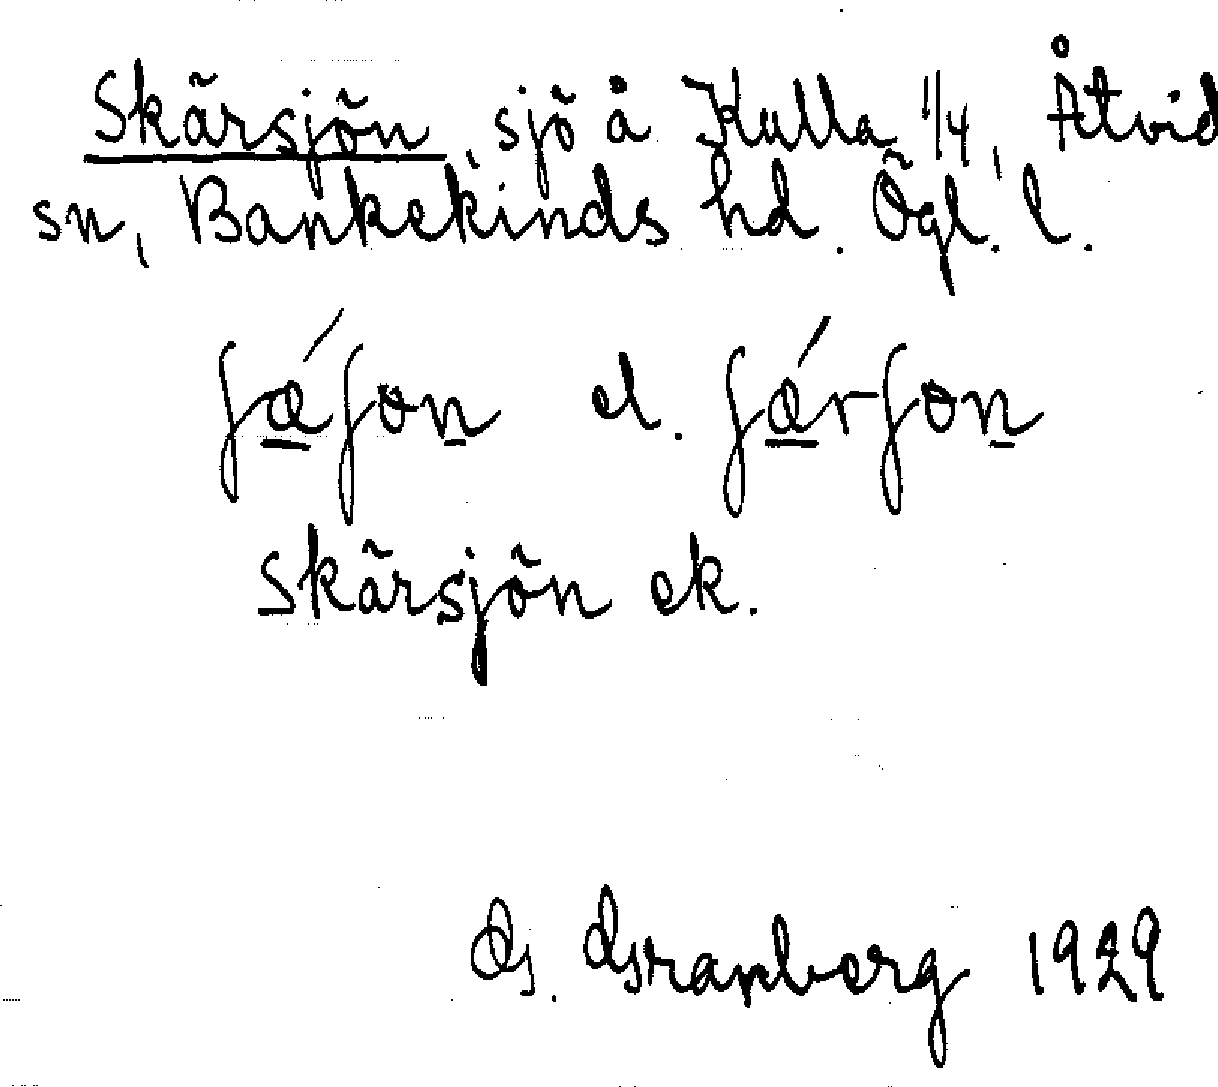 Skärsjön, sjö å Kulla 1/4, Åtvid
sn, Bankekinds hd. Ögl. l.
ʃǽʃon el. ʃǽrʃon
Skärsjön ek.
G. Granberg 1929